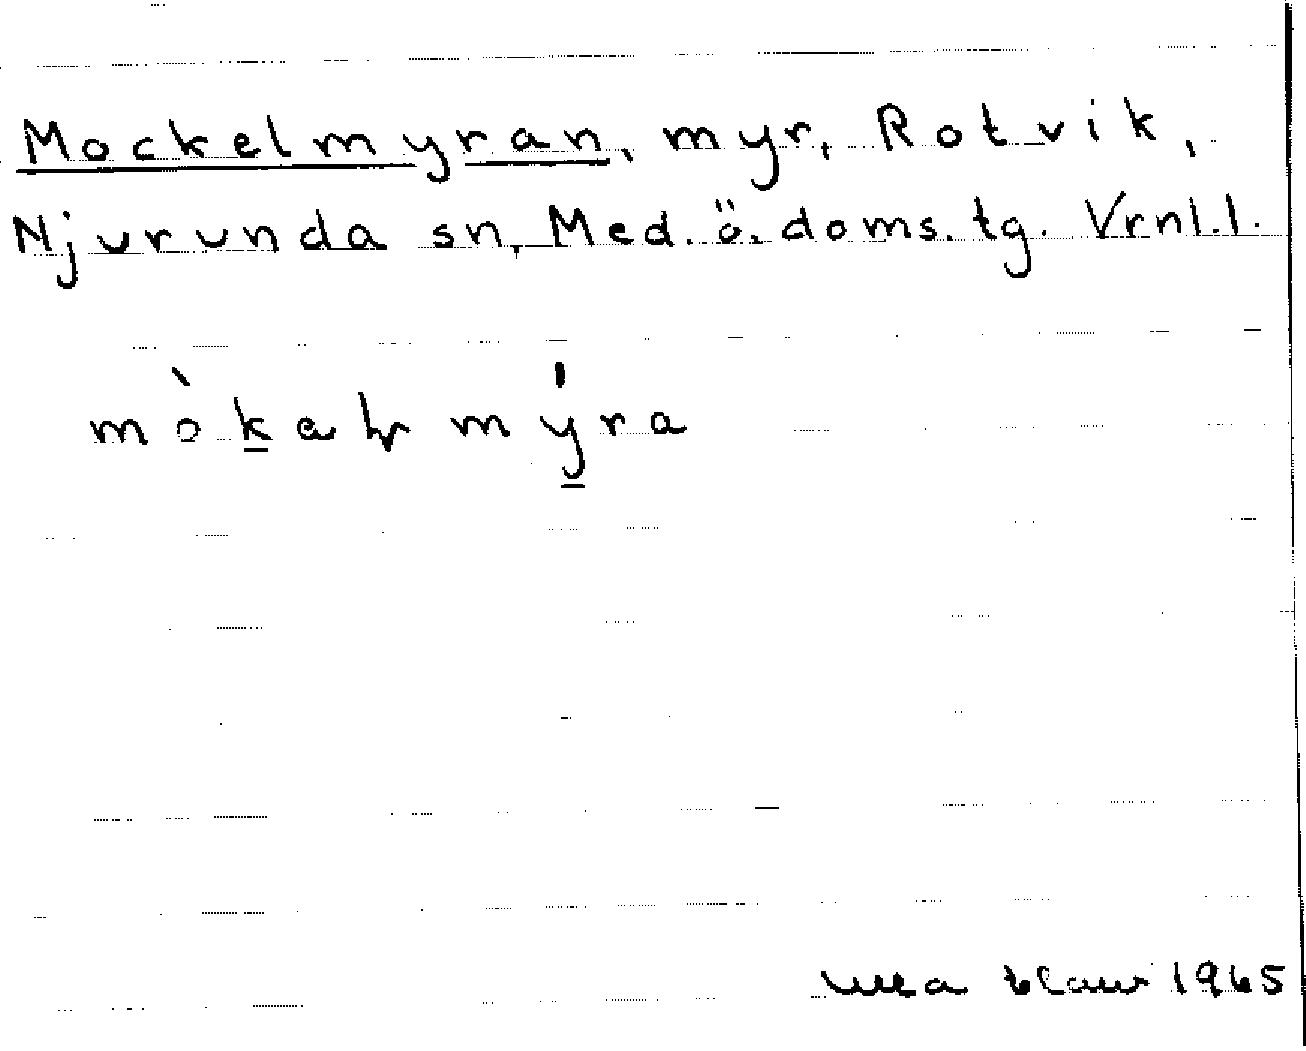 Mockelmyran, myr, Rotvik,
Njurunda sn, Med. ö. doms. tg. Vrnl.l.
1965